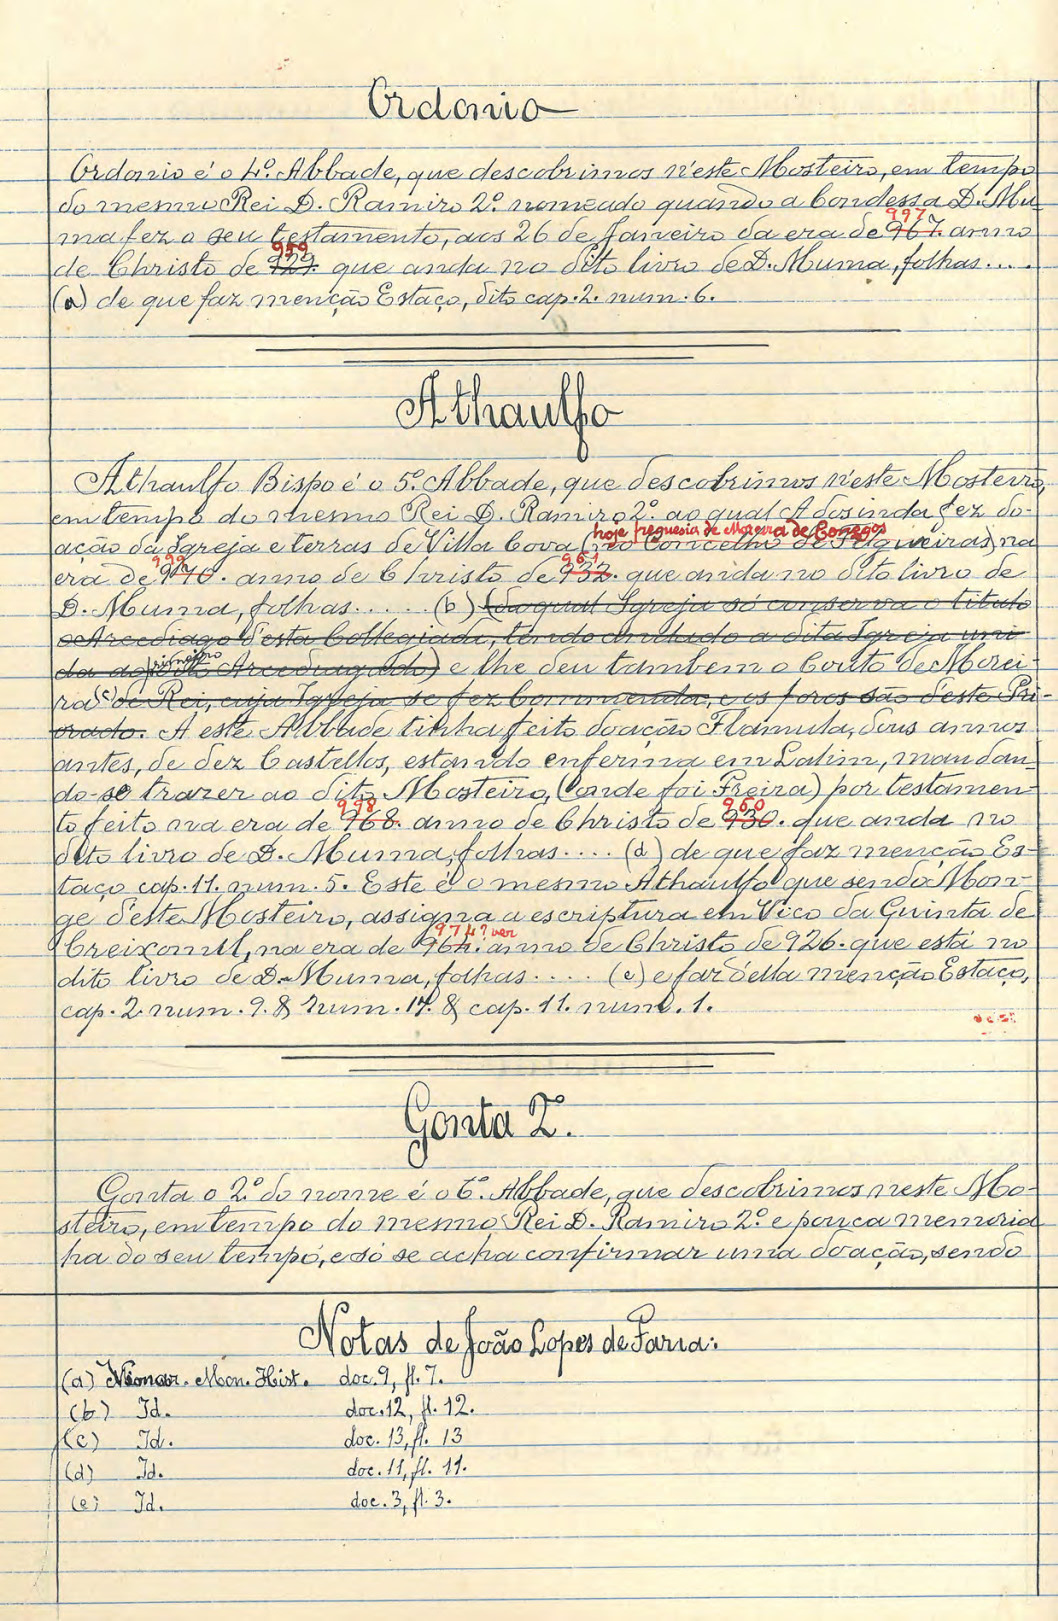 Ordonio
Ordonio é o 4º. Abbade, que descobrimos n'este Mosteiro, em tempo
do mesmo Rei D. Ramiro 2º. nomeado quando a Condessa D. Mu-
997
ma fez o seu testamento, aos 26 de Janeiro da era de 967. anno
959
de Christo de 929. que anda no dito livro de D. Muma, folhas....
(a) de que faz menção Estaço, dito cap. 2. num. 6.
Athaulfo
Athaulfo Bispo é o 5º. Abbade, que descobrimos n'este Mosteiro,
em tempo do mesmo Rei D. Ramiro 2º. ao qual Adosinda fez do-
hoje freguesia de Moreira de Conegos
ação da Igreja e terras de Villa Cova (no Concelho de Felgueiras) na
999 961
era de 970. anno de Christo de 932. que anda no dito livro de
D. Muma, folhas..... (b) (da qual Igreja só conserva o titulo
o Arcediago d'esta Collegiada, tendo a dita Igreja uni-
da ao dito Arcediagado) e lhe deu tambem o Couto de Morei-
ra (c) de Rei, cuja Igreja se fez Commenda, e os foros são d'este Pri-
orado. A este Abbade tinha feito doação Flamula, dous annos
antes, de dez Castellos, estando enferma em Lalim, mandan-
do-se trazer ao dito Mosteiro, (onde foi Freira) por testamen-
998 960
to feito na era de 968. anno de Christo de 930. que anda no
dito livro de D. Muma, folhas.... (d) de que faz menção Es-
taço cap. 11. num. 5. Este é o mesmo Athaulfo que sendo Mon-
ge d'este Mosteiro, assigna a escriptura em Vico da Quinta de
974? ver
Creixomil, na era de 964. anno de Christo de 926. que está no
dito livro de D. Muma, folhas.... (e) e faz d'ella menção Estaço,
cap. 2. num. 9. & num. 17. & cap. 11. num. 1.
Gonta 2.
Gonta o 2º. do nome é o 6º. Abbade, que descobrimos neste Mo-
steiro, em tempo do mesmo Rei D. Ramiro 2º. e pouca memoria
ha do seu tempo, e só se acha confirmar uma doação, sendo
Notas de João Lopes de Faria:
(a) Mon. Hist. doc. 9, fl. 7.
(b) Id. doc. 12, fl. 12.
(c) Id. doc. 13, fl. 13
(d) Id. doc. 11, fl. 11.
(e) Id. doc. 3, fl. 3.